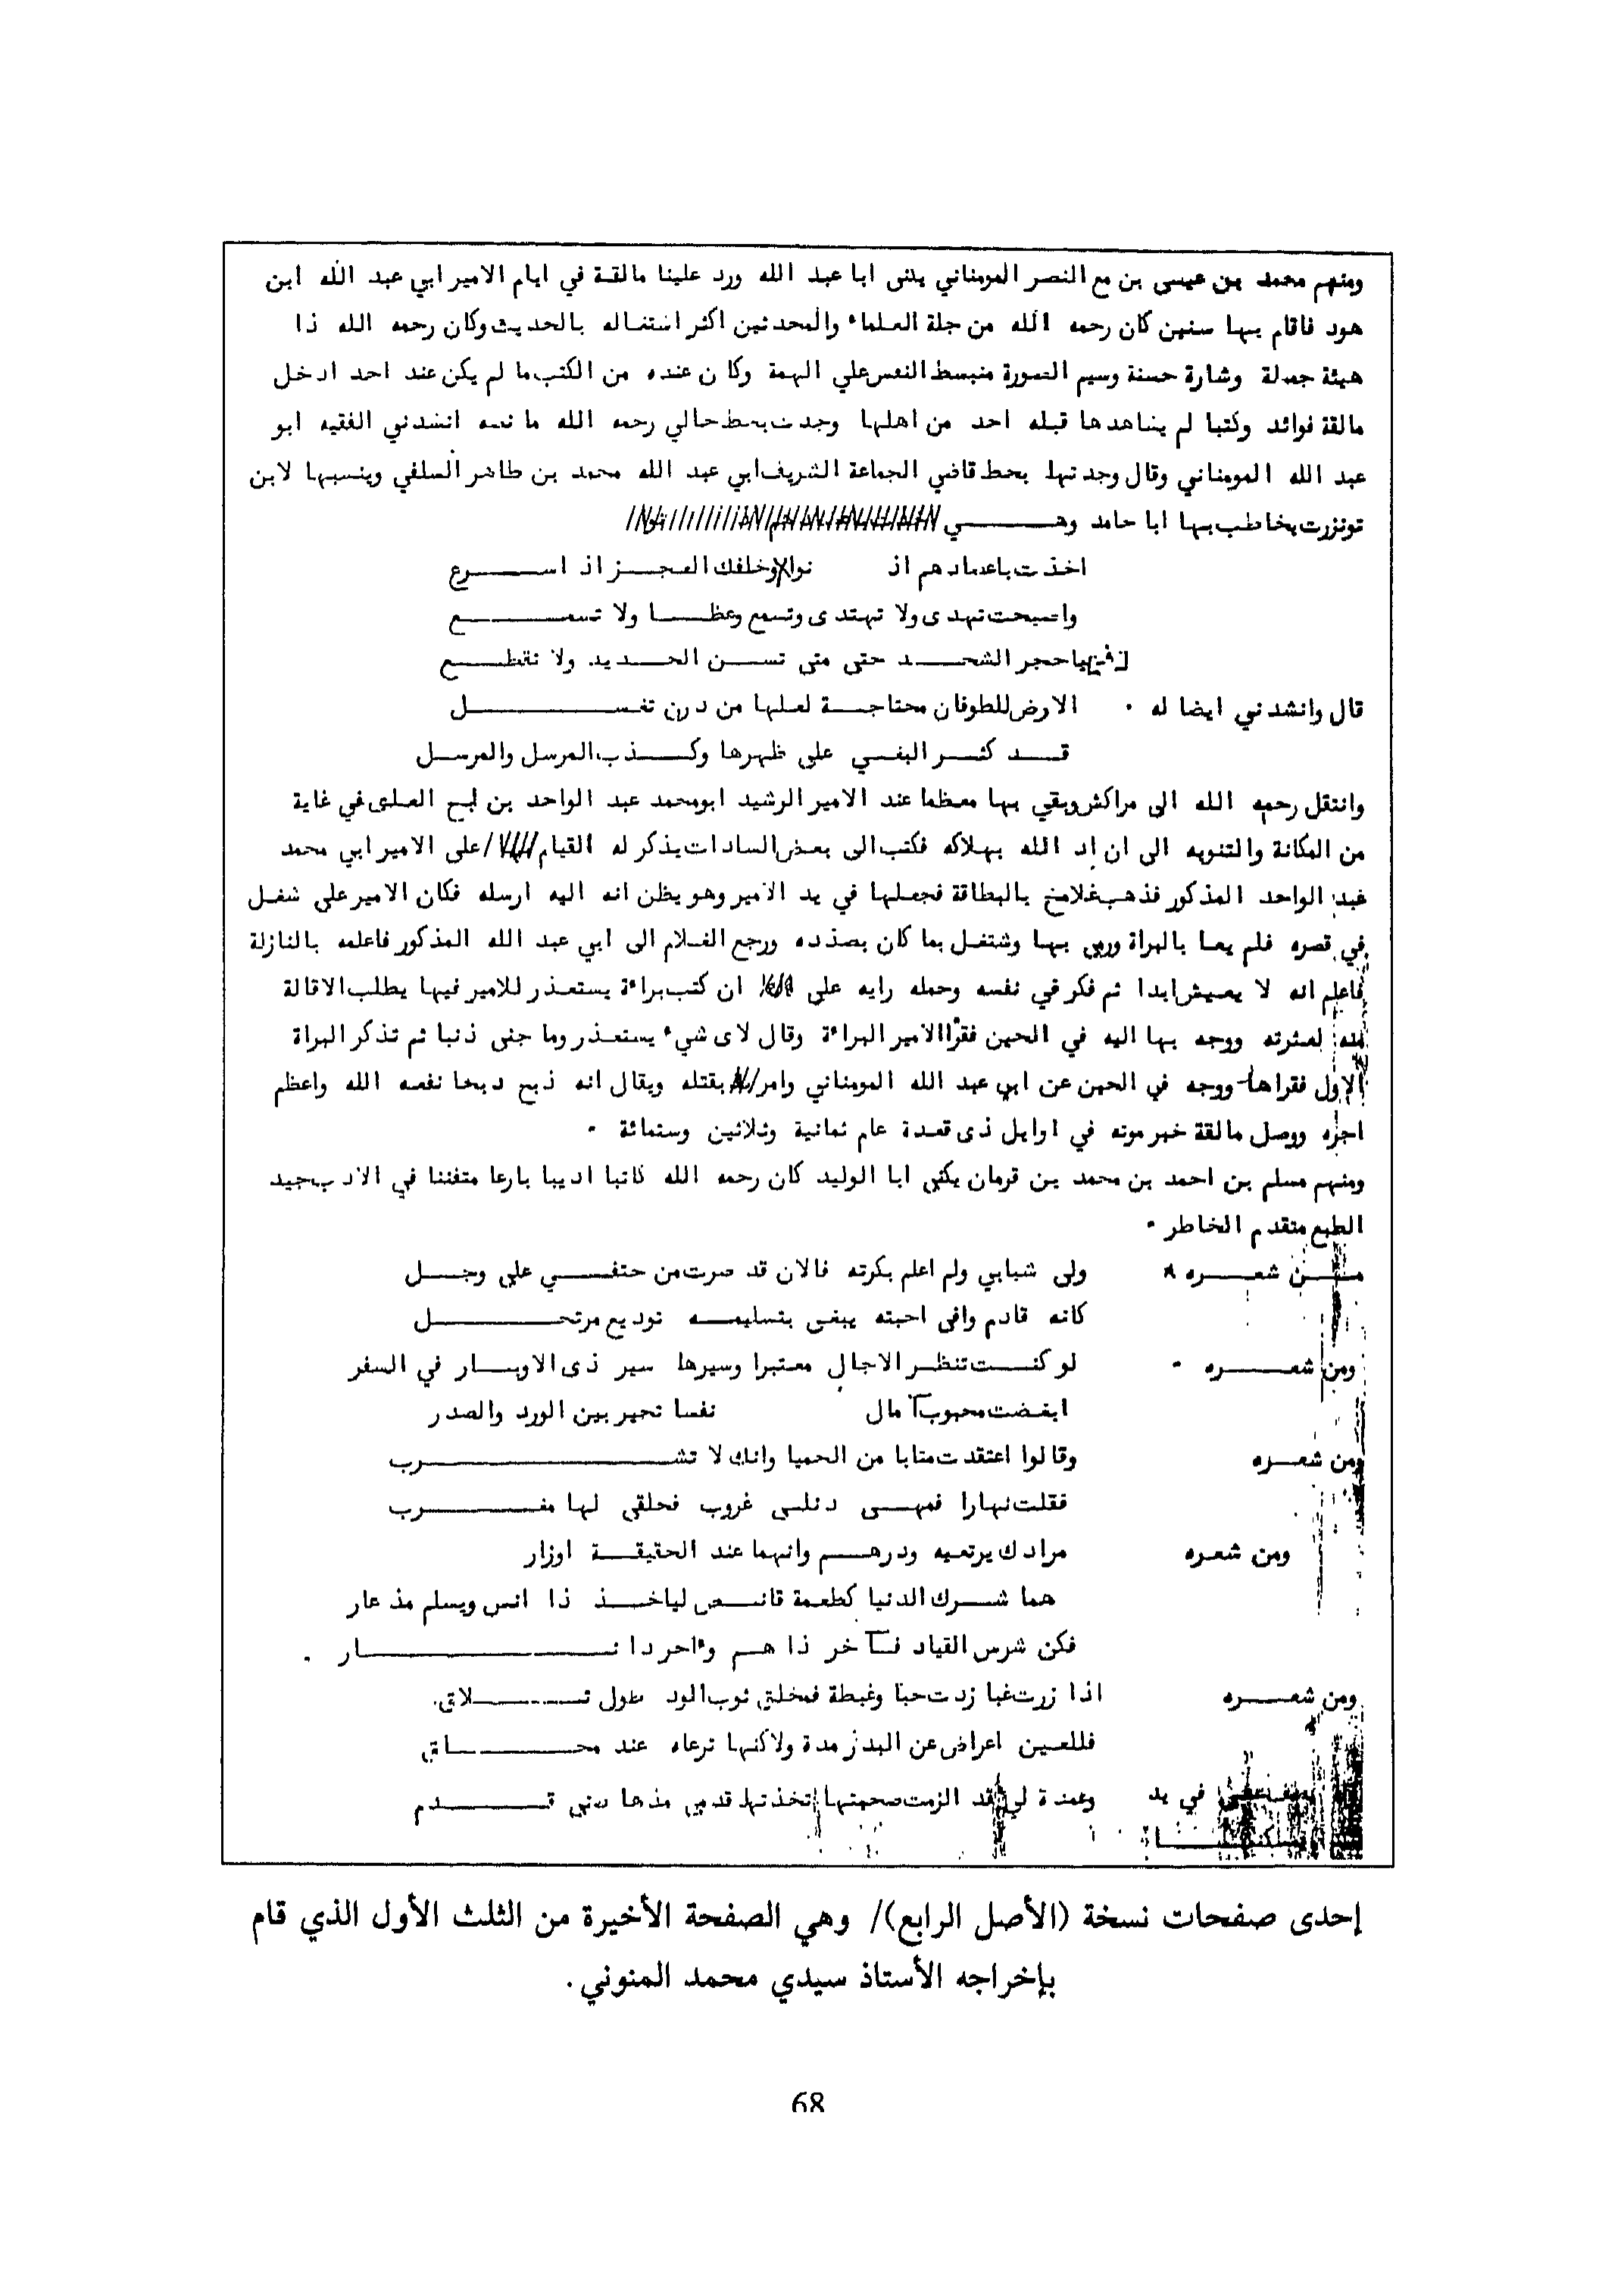 ومنهم محمد بن عيسى بن مع النصر المومناني يكنى ابا عبد الله ورد علينا مالقة في ايام الامير ابي عبد الله ابن
هود فاقام بها سنين كان رحمه الله من جلة العلماء والمحدثين اكثر اشتغاله بالحديث وكان رحمه الله ذا
هيئة جميلة وشارة حسنة وسيم الصورة منبسط النفس علي الهمة وكان عنده من الكتب ما لم يكن عند احد ادخل
مالقة فوائد وكتبا لم يشاهدها قبله احد من اهلها وجدت بخط خالي رحمه الله ما نصه انشدني الفقيه ابو
عبد الله المومناني وقال وجدتها بخط قاضي الجماعة الشريف ابي عبد الله محمد بن طاهر السلفي وينسبها لابن
تونزرت يخاطب بها ابا حامد وهـــي
اخذت باعضادهم اذ نوالاو خلفك العجـــز اذ اســـرع
واصبحت تهدى ولا تهتدى وتسمع وعظـــا ولا تسمـــع
فيا حجر الشحـــذ حتى متى تســـن الحـــديد ولا تقطـــع
قال وانشدني ايضا له . الارض للطوفان محتاجـــة لعلها من درن تغســـل
قـــد كثـــر البغـــي على ظهرها وكـــذب المرسل والمرســـل
وانتقل رحمه الله الى مراكش وبقي بها معظما عند الامير الرشيد ابومحمد عبد الواحد بن ابي العلى في غاية
من المكانة والتنويه الى ان اد الله بهلاكه فكتب الى بعض السادات يذكر له القيام على الامير ابي محمد
عبد الواحد المذكور فذهب غلامه بالبطاقة فجعلها في يد الامير وهو يظن انه اليه ارسله فكان الامير على شغل
في قصره فلم يعبا بالبراة ورمى بها وشتغل بما كان بصدده ورجع الغلام الى ابي عبد الله المذكور فاعلمه بالنازلة
فاعلم انه لا يعيش ابدا ثم فكر في نفسه وحمله رايه على ان كتب براءة يستعذر للامير فيها يطلب الاقالة
منه لعثرته ووجه بها اليه في الحين فقرا الامير البراءة وقال لاى شيء يستعذر وما جنى ذنبا ثم تذكر البراة
الاول فقراها ووجه في الحين عن ابي عبد الله المومناني وامر بقتله ويقال انه ذبح ذبحا نفعه الله واعظم
اجره ووصل مالقة خبر موته في اوايل ذى قعدة عام ثمانية وثلاثين وستمائة .
ومنهم مسلم بن احمد بن محمد بن قزمان يكنى ابا الوليد كان رحمه الله كاتبا اديبا بارعا متفننا في الادب جيد
الطبع متقدم الخاطر .
مـــن شعـــره ولى شبابي ولم اعلم بكرته فالان قد صرت من حتفـــي على وجـــل
كانه قادم وافى احبته يبغى بتسليمـــه توديع مرتحـــل
ومن شعـــره . لو كنـــت تنظر الاجال معتبرا وسيرها سير ذى الاوبـــار في السفر
ابغضت محبوب آمال نفسا تحير بين الورد والصدر
ومن شعـــره وقالوا اعتقدت متابا من الحميا وانك لا تشـــرب
فقلت نهارا فهـــى غروب فحلقى لها مغـــرب
ومن شعره مرادك يرتعيه ودرهـــم وانهما عند الحقيقـــة اوزار
هما شـــرك الدنيا كطعمة قانـــص لياخـــذ ذا انس ويسلم مذعار
فكن شرس القياد فـــآخر ذا هـــم واخر دا نـــار .
ومن شعـــره اذا زرت غبا زدت حبا وغبطة فمخلق ثوب الود طول تـــلاق.
فللعين اعراض عن البدر مدة ولاكنها ترعاه عند محـــاق
في يد وعمدة لي قد الزمت صحبتها اتخذتها قدمي مذها قـــدم
إحدى صفحات نسخة (الأصل الرابع)/ وهي الصفحة الأخيرة من الثلث الأول الذي قام
بإخراجه الأستاذ سيدي محمد المنوني.
68